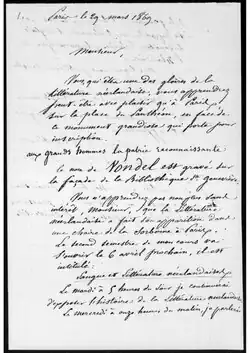 Paris le 29 mars 1869
Monsieur,
Vous qui êtes une des gloires de la
littérature néerlandaise, vous apprendrez
peut être avec plaisir qu'à Paris,
sur la place du Panthéon, en face de
ce monument grandiose qui porte pour
inscription
aux grands hommes la patrie reconnaissante
le nom de Vondel est gravé sur
la façade de la Bibliothèque Ste Geneviève
Vous n'apprendrez pas non plus sans
intérêt, Monsieur, que la littérature
néerlandaise a fait son apparition dans
une chaire de la Sorbonne à Paris.
Le second semestre de mon cours va
s'ouvrir le 6 avril prochain, il est
intitulé
Langue et littérature néerlandaises.
Le mardi à 5 heures du soir je continuerai
d'exposer l'histoire de la littérature néerlandaise
Le mercredi à onze heures du matin, je parlerai